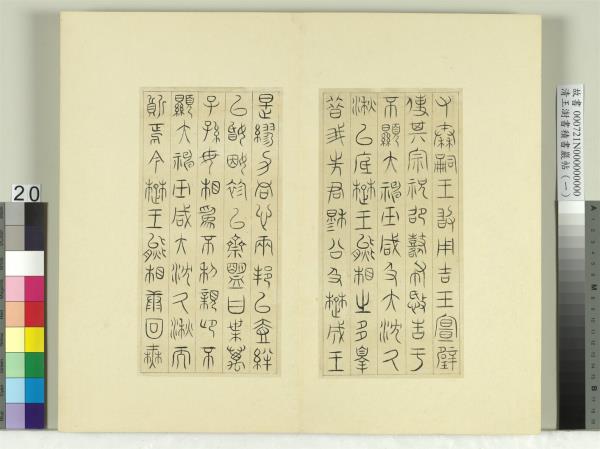 又秦嗣王敢用吉玉宣璧
使其宗祝邵鼛布憝告于
不顯大神巫咸及大沈久
湫以底楚王熊相之多辠
昔我先君穆公及楚成王
是繆力同心兩邦以壹絆
以婚姻袗以齋盟曰枼萬
子孫毋相為不利親卬不
顯大神巫咸大沈久湫而
質焉今楚王熊相康回無
故書 000721N000000000
清王澍書積書巖帖(一)
20